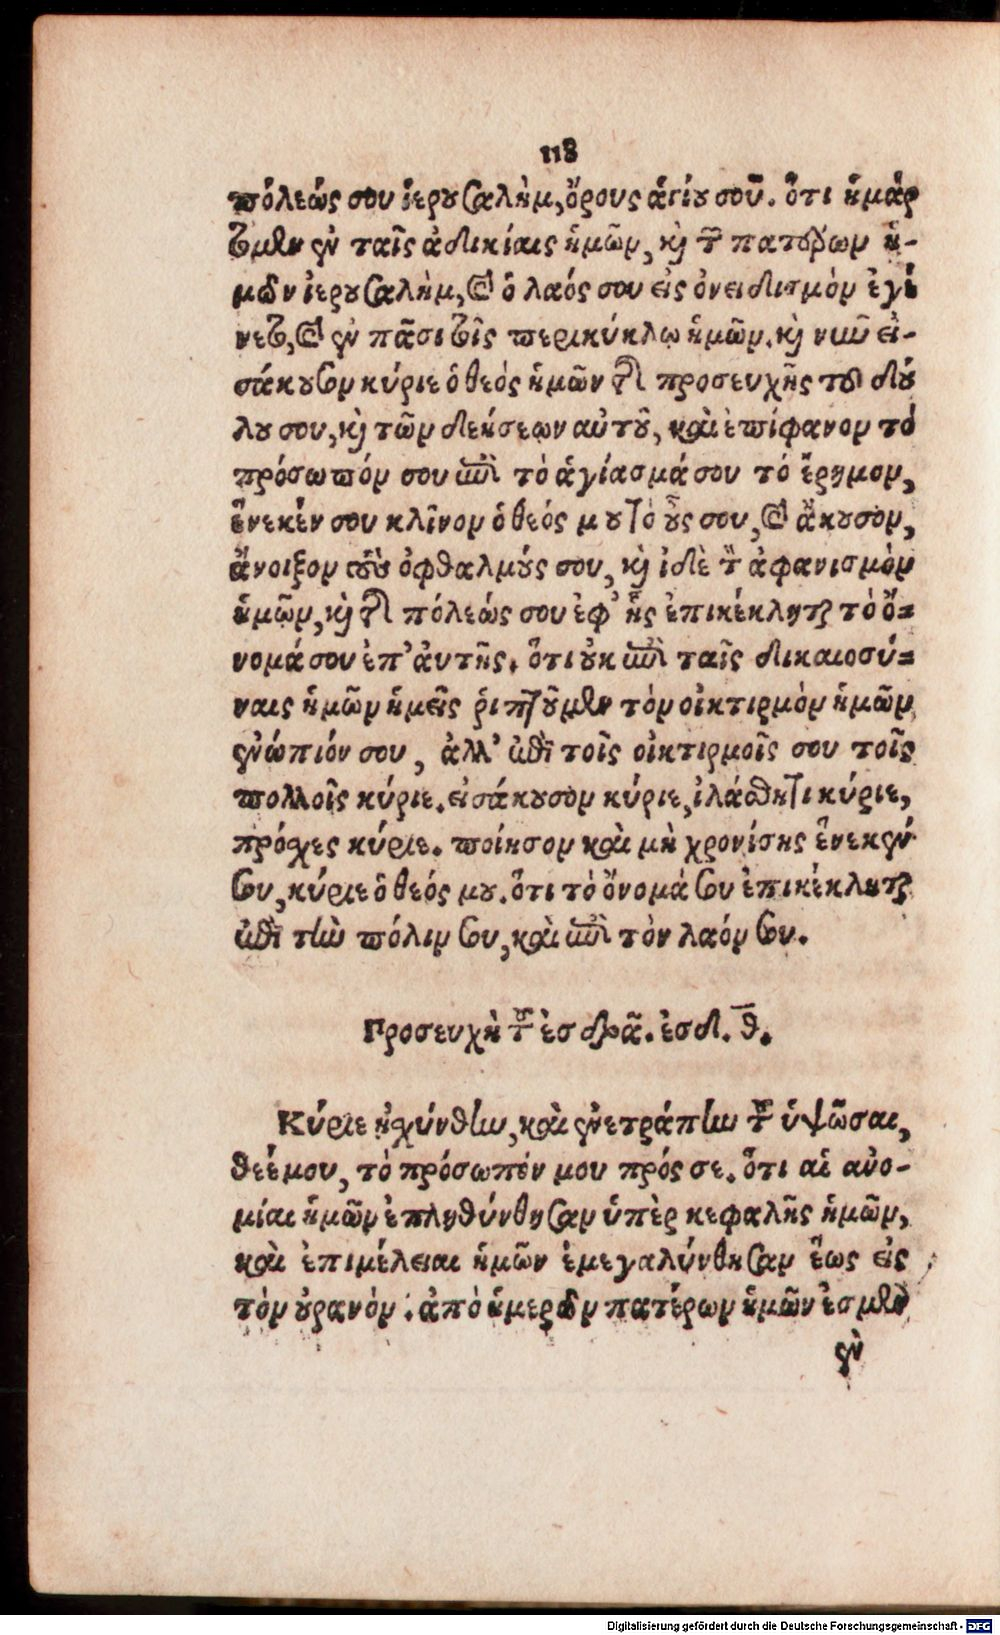 118
πόλεώς σου ἱερουσαλὴμ, ὄρους ἁγίου σοῦ. ὅτι ἡμάρ
τομεν ἐν ταῖς ἀδικίαις ἡμῶν, καὶ τῶν πατέρων ἡ-
μῶν ἱερουσαλὴμ, καὶ ὁ λαός σου εἰς ὀνειδισμὸν ἐγέ
νετο, καὶ ἐν πᾶσι τοῖς περικύκλῳ ἡμῶν. καὶ νῦν εἰ-
σάκουσον κύριε ὁ θεός ἡμῶν τῆς προσευχῆς τοῦ δού
λου σου, καὶ τῶν δεήσεων αὐτοῦ, καὶ ἐπίφανον τό
πρόσωπόν σου ἐπὶ τὸ ἁγίασμά σου τό ἔρημον,
ἕνεκέν σου κλῖνον ὁ θεός μου τὸ οὖς σου, καὶ ἄκουσον,
ἄνοιξον τοὺς ὀφθαλμούς σου, καὶ ἰδὲ τὸν ἀφανισμὸν
ἡμῶν, καὶ τῆς πόλεώς σου ἐφ’ ἧς ἐπικέκληται τὸ ὄ=
νομά σου ἐπ’ ἀυτῆς. ὅτι οὐκ ἐπὶ ταῖς δικαιοσύ=
ναις ἡμῶν ἡμεῖς ῥιπτοῦμεν τὸν οἰκτιρμὸν ἡμῶν
ἐνώπιόν σου, ἀλλ’ ἐπὶ τοῖς οἰκτιρμοῖς σου τοῖς
πολλοῖς κύριε. εἰσάκουσον κύριε, ἱλάσθητι κύριε,
πρόσχες κύριε. ποίησον καὶ μὴ χρονίσῃς ἕνεκεν
σου, κύριε ὁ θεός μου. ὅτι τὸ ὄνομά σου ἐπικέκληται
ἐπὶ τὴν πόλιν σου, καὶ ἐπὶ τὸν λαόν σου.
Προσευχὴ τοῦ ἐσδρᾶ. ἐσδ. θ̅.
Κύριε ᾐσχύνθην, καὶ ἐνετράπην τοῦ ὑψῶσαι,
θεέ μου, τὸ πρόσωπόν μου πρός σε. ὅτι αἱ ἀνο-
μίαι ἡμῶν ἐπληθύνθησαν ὑπὲρ κεφαλῆς ἡμῶν,
καὶ ἐπιμέλειαι ἡμῶν ἐμεγαλύνθησαν ἕως εἰς
τὸν οὐρανὸν. ἀπὸ ἡμερῶν πατέρων ἡμῶν ἐσμὲν
ἐν
Digitalisierung gefördert durch die Deutsche Forschungsgemeinschaft - DFG